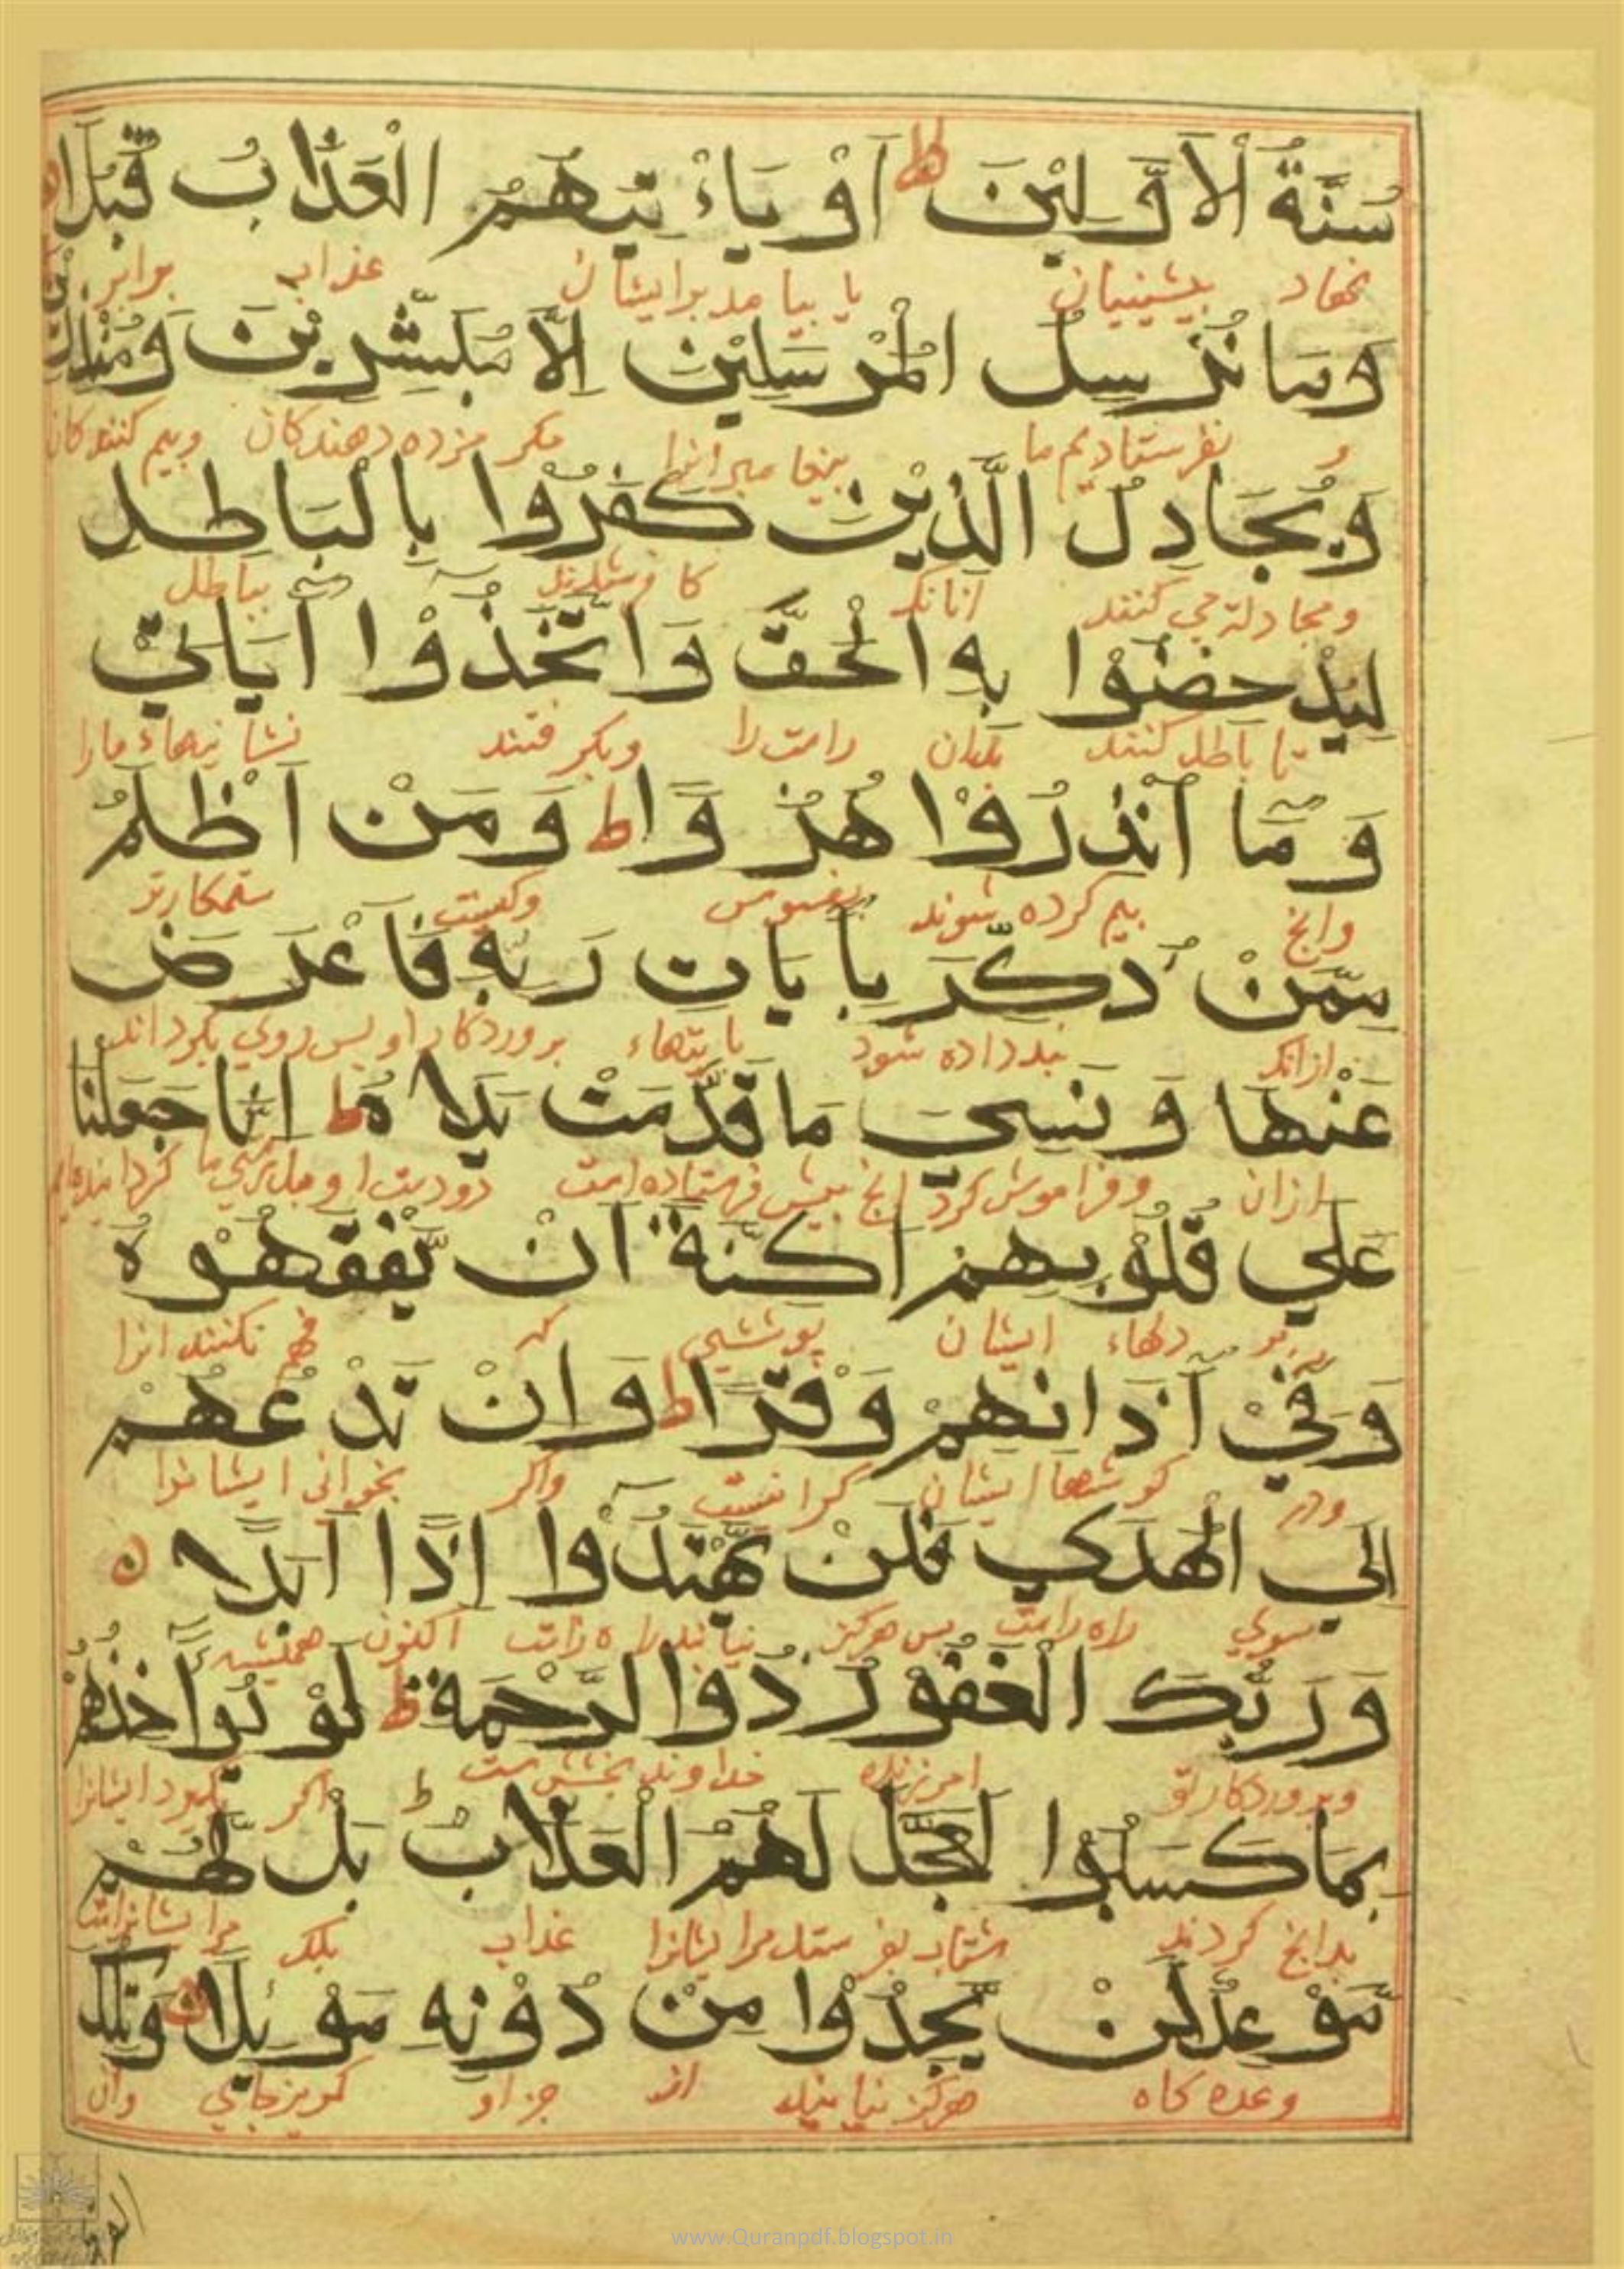 سُنَّةُ الْاَوَّلِيْنَ ط اَوْ يَاْءتِيَهُمُ الْعَذَابُ قُبُلًا
نهاد پیشینیان یا بیامد برایشان عذاب برابر
وَمَا نُرْسِلُ الْمُرْسَلِيْنَ اِلَّا مُبَشِّرِيْنَ وَمُنْذِرِيْنَ
و نفرستادیم ما پیغامبرانرا مکر مزده دهندکان وبیم کنندکان
وَيُجَادِلُ الَّذِيْنَ كَفَرُوْا بِالْبَاطِلِ
ومجادله می کنند آنانکه کافر شدند بباطل
لِيُدْحِضُوْا بِهِ الْحَقَّ وَاتَّخَذُوْا آيَاتِيْ
تا باطل کنند بدان راست را وبکرفتند نشانیهاء مارا
وَمَا اُنْذِرُوْا هُزُوًا ط وَمَنْ اَظْلَمُ
وانچ بیم کرده شوند بفسوس وکیست ستمکارتر
مِمَّنْ ذُكِّرَ بِاٰيَاتِ رَبِّهِ فَاَعْرَضَ
ازانکه پند داده شود بایتهاء پروردکار او پس روی بکرداند
عَنْهَا وَنَسِيَ مَا قَدَّمَتْ يَدَاهُ ط اِنَّا جَعَلْنَا
ازان وفراموش کرد انچ پیش فرستاده است دو دست او بدرستی ما کردانیده ایم
عَلٰي قُلُوْبِهِمْ اَكِنَّةً اَنْ يَّفْقَهُوْهُ
بر دلهاء ایشان پوششی که فهم نکنند انرا
وَفِيْ آذَانِهِمْ وَقْرًا ط وَاِنْ تَدْعُهُمْ
ودر کوشها ایشان کرانیست واکر بخوانی ایشانرا
اِلَي الْهُدٰي فَلَنْ يَّهْتَدُوْا اِذًا اَبَدًا
سوی راه راست پس هرکز نیابند راه راست اکنون همیشه
وَرَبُّكَ الْغَفُوْرُ ذُوا الرَّحْمَةِ ط لَوْ يُوَاخِذُهُمْ
وپروردکار تو امرزنده خداوند بخشش است اکر بکیرد ایشانرا
بِمَا كَسَبُوْا لَعَجَّلَ لَهُمُ الْعَذَابَ ط بَلْ لَّهُمْ
بدانچ کردند شتاب بفرستد مرایشانرا عذاب بلک مرایشانراست
مَّوْعِدٌ لَّنْ يَّجِدُوْا مِنْ دُوْنِهِ مَوْئِلًا وَتِلْكَ
وعده کاه هرکز نیابند از جز او کریزجای وان
القری
www.Quranpdf.blogspot.in